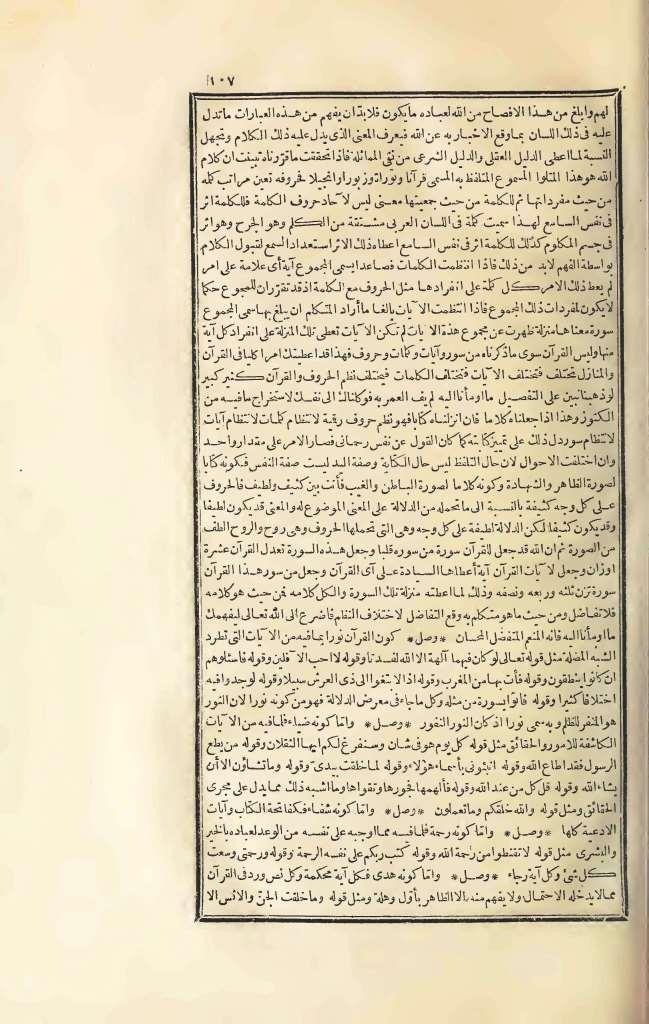 ١٠٧
لهم وابلغ من هذا الافصاح من الله لعباده ما يكون فلا بد ان يفهم من هذه العبارات ما تدل
عليه فى ذلك اللسان بما وقع الاخبار به عن الله فيعرف المعنى الذى يدل عليه ذلك الكلام وتجهل
النسبة لما اعطى الدليل العقلى والدليل الشرعى من نفى المماثلة فاذا تحققت ما قررناه تبينت ان كلام
الله هو هذا المتلو المسموع المتلفظ به المسمى قرآنا وتوراة وزبورا وانجيلا فحروفه تعين مراتب كلمه
من حيث مفرداتها ثم للكلمة من حيث جمعيتها معنى ليس لآحاد حروف الكلمة فللكلمة اثر
فى نفس السامع لهذا سميت كلمة فى اللسان العربى مشتقة من الكلم وهو الجرح وهو اثر
فى جسم المكلوم كذلك للكلمة اثر فى نفس السامع اعطاه ذلك الاثر استعداد السمع لقبول الكلام
بواسطة الفهم لابد من ذلك فاذا انتظمت الكلمات فصاعدا يسمى المجموع آية أى علامة على امر
لم يعط ذلك الامر كل كلمة على انفرادها مثل الحروف مع الكلمة اذ قد تقرر ان للمجموع حكما
لا يكون لمفردات ذلك المجموع فاذا انتظمت الآيات بالغا ما أراد المتكلم ان يبلغ بها سمى المجموع
سورة معناها منزلة ظهرت عن مجموع هذه الآيات لم تكن الآيات تعطى تلك المنزلة على انفراد كل آية
منها وليس القرآن سوى ما ذكرناه من سور وآيات وكلمات وحروف فهذا قد اعطيتك امرا كليا فى القرآن
والمنازل تختلف فتختلف الآيات فتختلف الكلمات فيختلف نظم الحروف والقرآن كثير كبير
لو ذهبنا نبين على التفصيل ما اومأنا اليه لم يف العمر به فوكلناك الى نفسك لاستخراج ما فيه من
الكنوز وهذا اذا جعلناه كلاما فان انزلناه كتابا فهو نظم حروف رقمية لانتظام كلمات لانتظام آيات
لانتظام سور دل ذلك على تمييز كتابته كما كان القول عن نفس رحمانى فصار الامر على مقدار واحد
وان اختلفت الاحوال لان حال التلفظ ليس حال الكتابة وصفة اليد ليست صفة النفس فكونه كتابا
لصورة الظاهر والشهادة وكونه كلاما لصورة الباطن والغيب فأنت بين كثيف ولطيف فالحروف
على كل وجه كثيفة بالنسبة الى ما تحمله من الدلالة على المعنى الموضوع له والمعنى قد يكون لطيفا
وقد يكون كثيفا لكن الدلالة لطيفة على كل وجه وهى التى تحملها الحروف وهى روح والروح الطف
من الصورة ثم ان الله قد جعل للقرآن سورة من سوره قلبا وجعل هذه السورة تعدل القرآن عشرة
اوزان وجعل لآيات القرآن آية أعطاها السيادة على آى القرآن وجعل من سور هذا القرآن
سورة تزن ثلثه وربعه ونصفه وذلك لما اعطته منزلة تلك السورة والكل كلامه فمن حيث هو كلامه
فلا تفاضل ومن حيث ما هو متكلم به وقع التفاضل لاختلاف النظم فاضرع الى الله تعالى ليفهمك
ما اومأنا اليه فانه المنعم المتفضل المحسان * وصل * كون القرآن نورا بما فيه من الآيات التى تطرد
الشبه المضلة مثل قوله تعالى لو كان فيهما آلهة الا الله لفسدتا وقوله لا احب الآفلين وقوله فاسئلوهم
ان كانوا ينطقون وقوله فأت بها من المغرب وقوله اذا لابتغوا الى ذى العرش سبيلا وقوله لوجدوا فيه
اختلافا كثيرا وقوله فاتوا بسورة من مثله وكل ما جاء فى معرض الدلالة فهو من كونه نورا لان النور
هو المنفر للظلم وبه سمى نورا اذ كان النور النفور * وصل * واتما كونه ضياء فلما فيه من الآيات
الكاشفة للامور والحقائق مثل قوله كل يوم هو فى شان وسنفرغ لكم ايها الثقلان وقوله من يطع
الرسول فقد اطاع الله وقوله انبئونى بأسماء هؤلاء وقوله لما خلقت بيدى وقوله وما تشاؤن الا أن
يشاء الله وقوله قل كل من عند الله وقوله فألهمها فجورها وتقواها وما اشبه ذلك مما يدل على مجرى
الحقائق ومثل قوله والله خلقكم وما تعملون * وصل * واتما كونه شفاء فكفاتحة الكتاب وآيات
الادعية كلها * وصل * واتما كونه رحمة فلما فيه مما اوجبه على نفسه من الوعد لعباده بالخير
والبشرى مثل قوله لا تقنطوا من رحمة الله وقوله كتب ربكم على نفسه الرحمة وقوله ورحمتى وسعت
كل شئ وكل آية رجاء * وصل * واتما كونه هدى فكل آية محكمة وكل نص ورد فى القرآن
مما لا يدخله الاحتمال ولا يفهم منه الا الظاهر بأول وهلة ومثل قوله وما خلقت الجن والانس الا